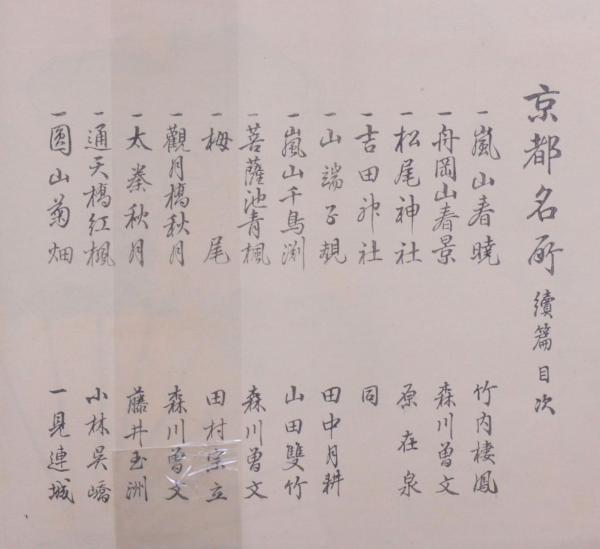 京都名所 續篇目次
一嵐山春曉 竹内棲鳳
一舟岡山春景 森川曽文
一松尾神社 原在泉
一吉田神社 同
一山端子規 田中月耕
一嵐山千鳥渕 山田雙竹
一菩薩池青楓 森川曽文
一栂尾 田村宗立
一觀月橋秋月 森川曽文
一太秦秋月 藤井玉洲
一通天橋紅楓 小林呉嶠
一圓山菊畑 一見連城